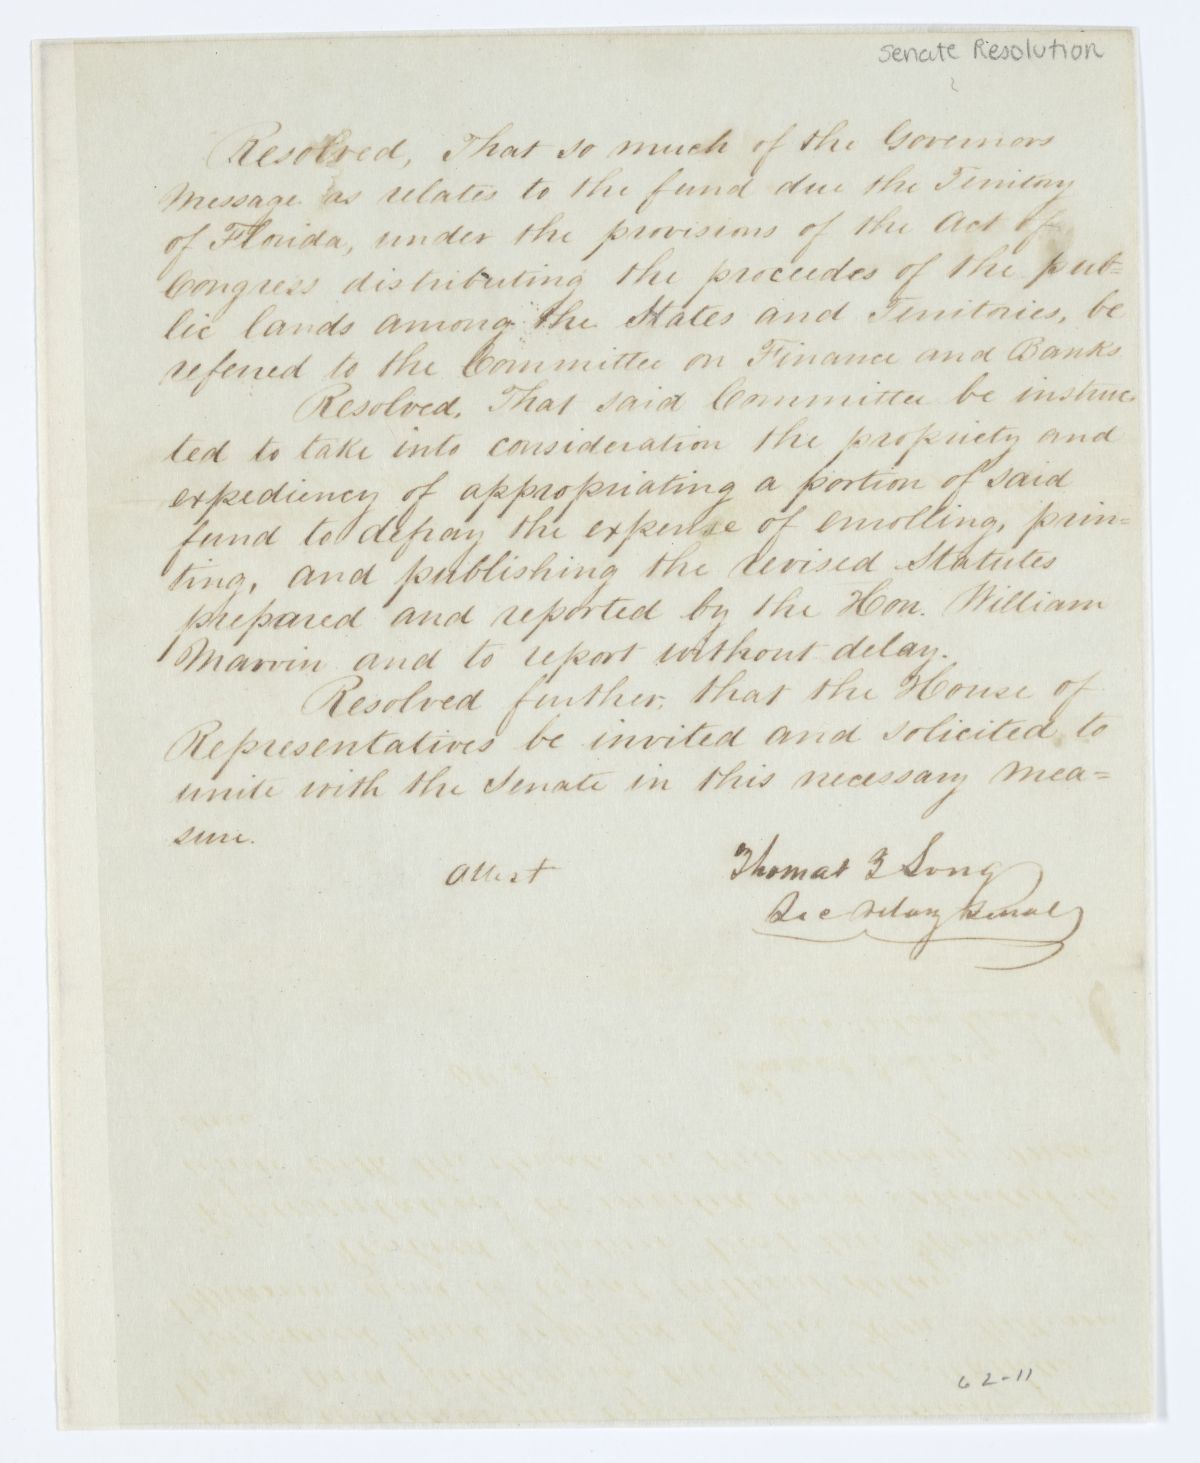 Senate Resolution
Resolved, That so much of the Governors
Message as relates to the fund due the Territory
of Florida, under the provisions of the Act of
Congress distributing the proceedes of the pub=
lic lands among the States and Territories, be
referred to the Committee on Finance and Banks
Resolved, That said Committee be instruc
ted to take into consideration the propriety and
expediency of appropriating a portion of said
fund to defray the expense of enrolling, prin=
ting, and publishing the revised Statutes
prepared and reported by the Hon. William
Marvin and to report without delay.
Resolved further, that the House of
Representatives be invited and solicited to
unite with the Senate in this necessary mea=
sure.
Attest
Thomas T Long
Secretary Senate
62-11